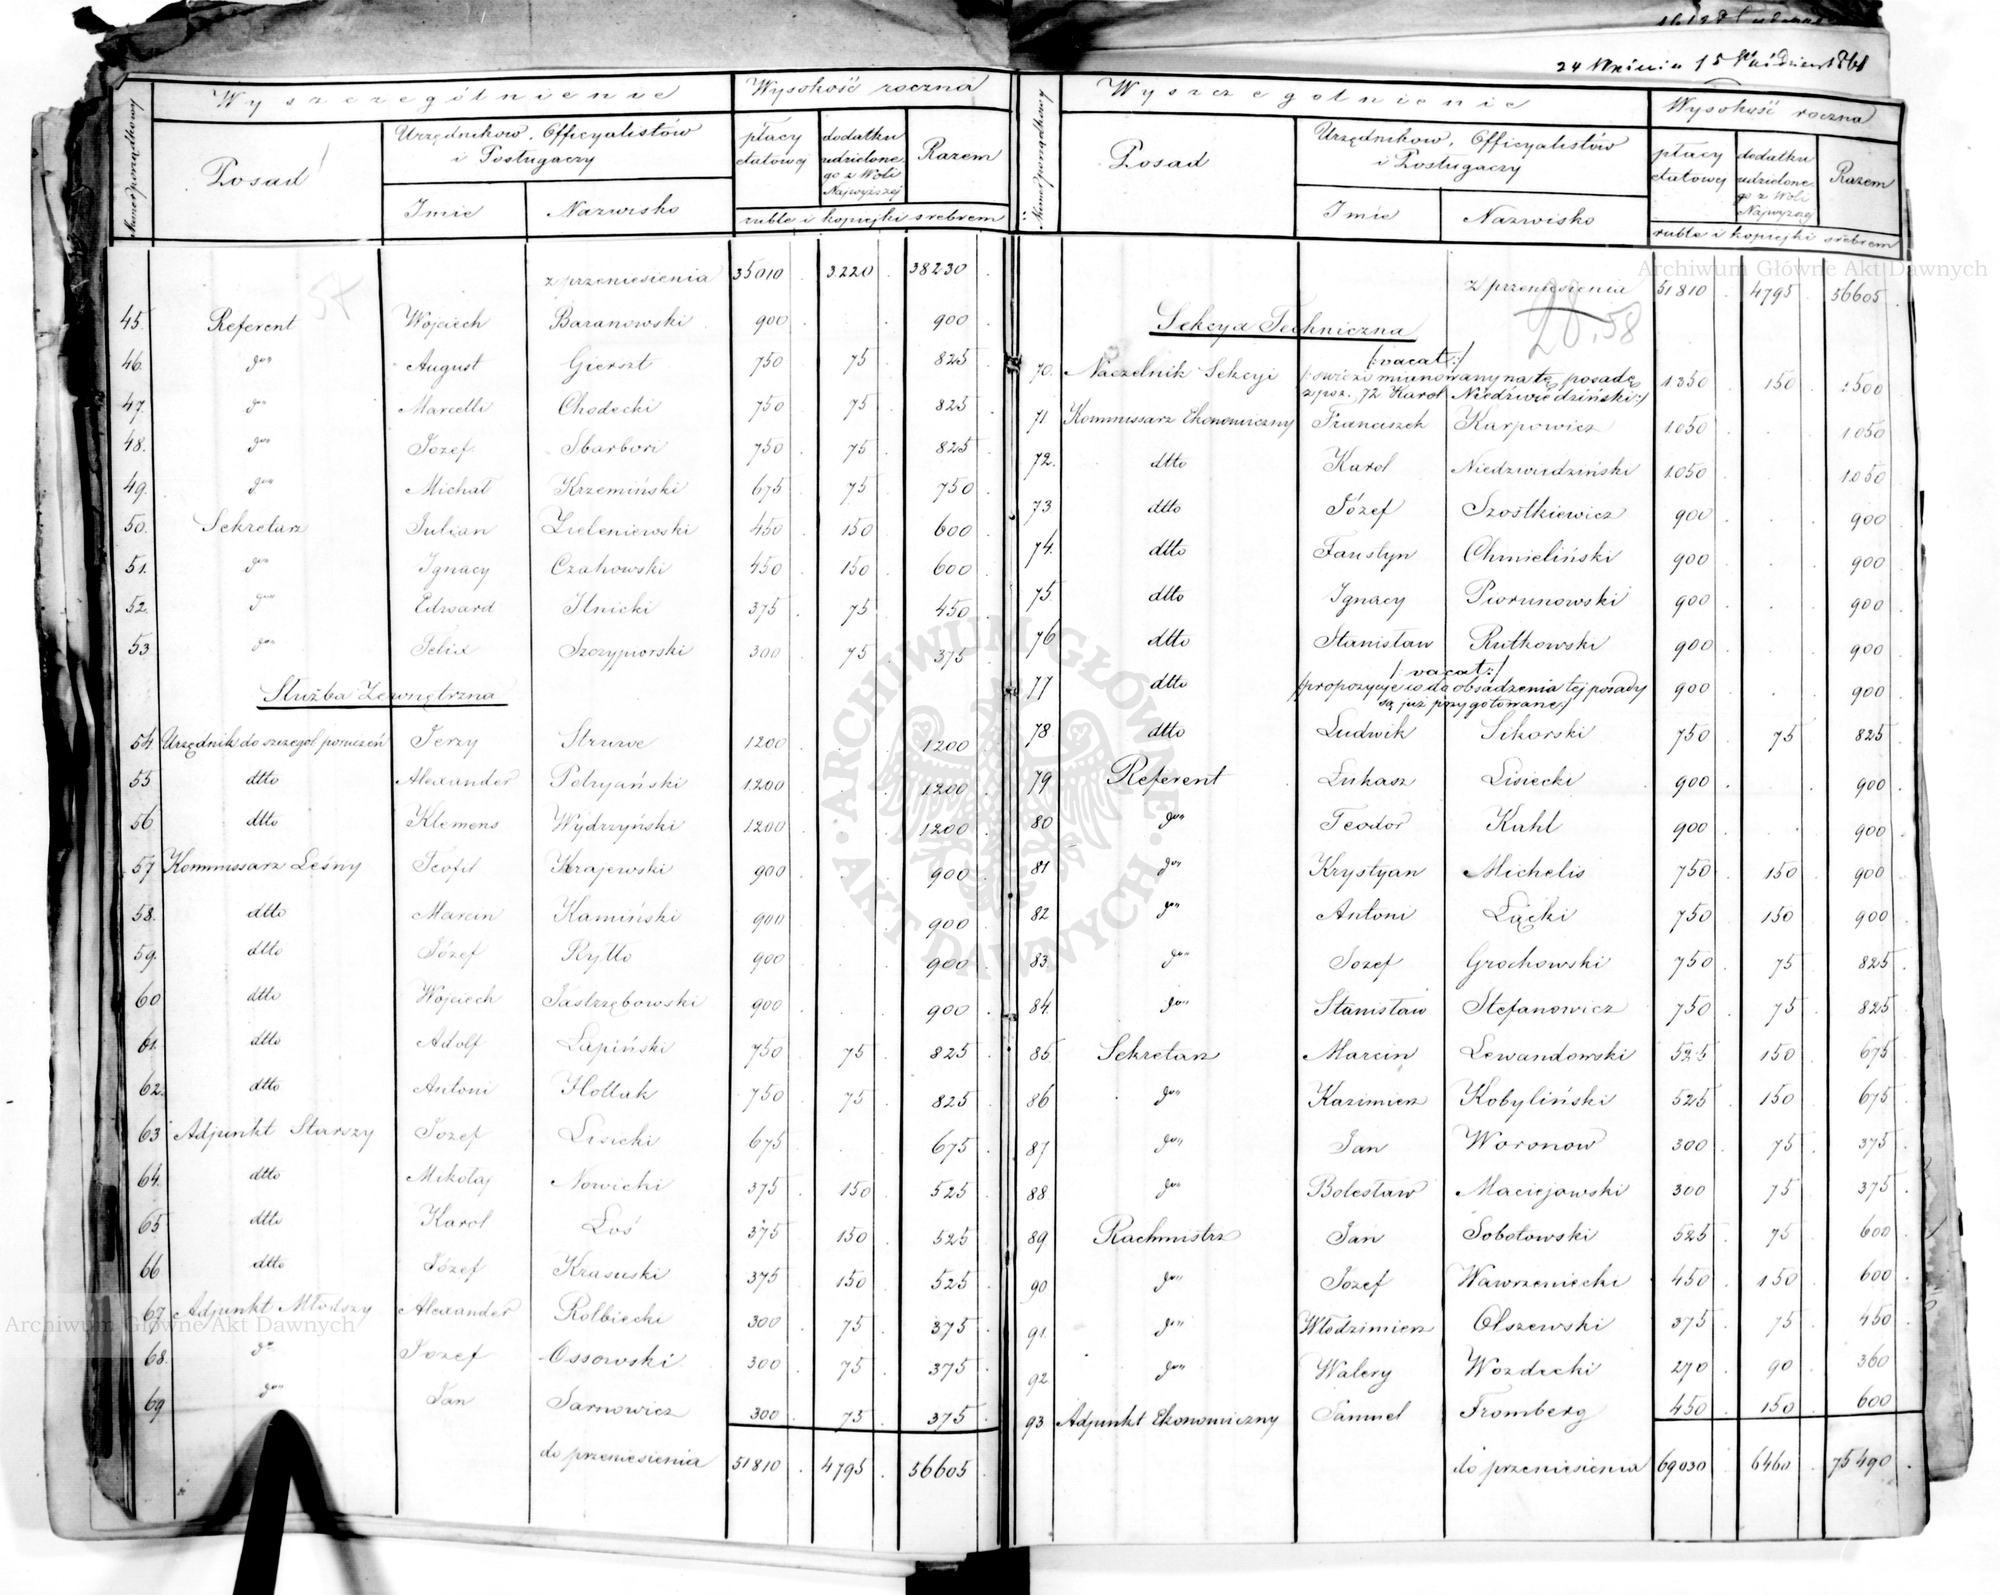 24 Września 15 Października 1861
Wyszczególnienie
Wysokość roczna
Numer porządkowy
Posad
Urzędników, Officyalistów
i Posługaczy
płacy
etatowej
dodatku
udzielone-
go z Woli
Najwyższej
Razem
Imie Nazwisko
ruble i kopiejki srebrem
z przeniesienia 35010 . 3220 . 38230 .
45. Referent Wojciech Baranowski 900 . 900 .
46. do August Gierszt 750 75 825
47. do Marcelli Chodecki 750 . 75 . 825 .
48. do Jozef Sbarboni 750 . 75 . 825 .
49. do Michał Krzemiński 675 . 75 . 750 .
50. Sekretarz Julian Zieleniewski 450 . 150 . 600 .
51. do Ignacy Czakowski 450 . 150 . 600 .
52. do Edward Ilnicki 375 . 75 . 450 .
53 do Felix Szczypiorski 300 . 75 . 375 .
Służba Zewnętrzna
54 Urzędnik do szczegół poruczeń Jerzy Struwe 1200 . . 1200 .
55 dtto Alexander Petryański 1200 . . 1200 .
56 dtto Klemens Wydrzyński 1200 . . 1200 .
57 Kommissarz Leśny Teofil Krajewski 900 . . 900 .
58. dtto Marcin Kamiński 900 . . 900 .
59. dtto Józef Rytto 900 . . 900 .
60 dtto Wojciech Jastrzębowski 900 . . 900 .
61. dtto Adolf Łapiński 750 . 75 . 825 .
62. dtto Antoni Hollak 750 . 75 . 825 .
63 Adjunkt Starszy Jozef Lisicki 675 . . 675 .
64. dtto Mikołaj Nowicki 375 . 150 . 525 .
65 dtto Karol Łoś 375 . 150 . 525 .
66 dtto Józef Krasuski 375 . 150 . 525 .
67. Adjunkt Młodszy Alexander Rolbiecki 300 . 75 . 375 .
68. do Jozef Ossowski 300 . 75 . 375 .
69 do Jan Sarnowicz 300 . 75 . 375 .
do przeniesienia 51810 . 4795 . 56605 .
Wyszczegolnienie
Wysokość roczna
Numer porządkowy
Posad
Urzędnikow, Officyalistów
i Posługaczy
płacy
etatowej
dodatku
udzielone-
go z Woli
Najwyzszej
Razem
Imie Nazwisko
ruble i kopiejki srebrem
z przeniesienia 51810 . 4795 . 56605 .
58
Sekcya Techniczna
/:vacat:/
70. Naczelnik Sekcyi /:świeżo mianowany na tę posadę 1350 . 150 . 1500
z poz. 72 Karol Niedzwiedziński:/
71. Kommissarz Ekonomiczny Franciszek Karpowicz 1050 . . 1050
72. dtto Karol Niedzwiedziński 1050 . . 1050
73 dtto Józef Szostkiewicz 900 . . 900
74. dtto Faustyn Chmieliński 900 . . 900
75. dtto Ignacy Piorunowski 900 . . 900
76 dtto Stanisław Rutkowski 900 . . 900
/:vacat:/
77 dtto /:propozycje do obsadzenia tej posady 900 . . 900
są już przygotowane:/
78 dtto Ludwik Sikorski 750 . 75 . 825
79 Referent Łukasz Lisiecki 900 . . 900
80 do Teodor Kuhl 900 . . 900
81 do Krystyan Michelis 750 . 150 . 900
82 do Antoni Łącki 750 . 150 . 900
83 do Jozef Grochowski 750 . 75 . 825
84. do Stanisław Stefanowicz 750 . 75 . 825
85 Sekretarz Marcin Lewandowski 525 . 150 . 675
86 do Kazimierz Kobyliński 525 . 150 . 675
87 do Jan Woronow 300 . 75 . 375
88 do Bolesław Maciejowski 300 . 75 . 375
89 Rachmistrz Jan Sobotowski 525 . 75 . 600
90 do Jozef Wawrzeniecki 450 . 150 . 600
91. do Włodzimierz Olszewski 375 . 75 . 450
92 do Walery Wozdecki 270 . 90 . 360
93 Adjunkt Ekonomiczny Samuel Fromberg 450 . 150 . 600
do przeniesienia 69030 . 6460 . 75490 .
Archiwum Główne Akt Dawnych
· ARCHIWUM GŁÓWNE · AKT DAWNYCH ·
Archiwum Główne Akt Dawnych